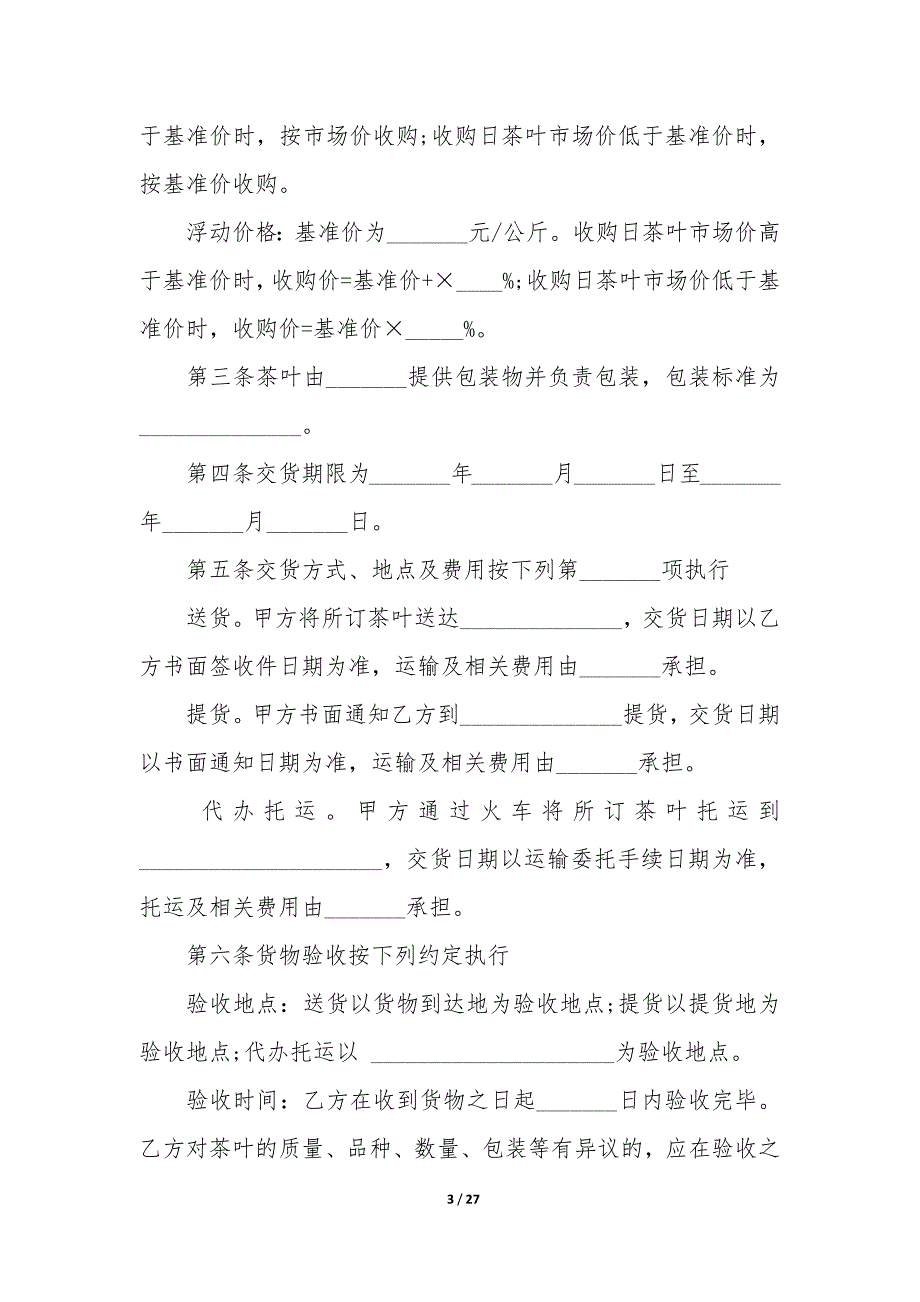 于基准价时，按市场价收购;收购日茶叶市场价低于基准价时，
按基准价收购。
浮动价格：基准价为_______元/公斤。收购日茶叶市场价高
于基准价时，收购价=基准价+×____%;收购日茶叶市场价低于基
准价时，收购价=基准价×_____%。
第三条茶叶由_______提供包装物并负责包装，包装标准为
______________。
第四条交货期限为_______年_______月_______日至_______
年_______月_______日。
第五条交货方式、地点及费用按下列第_______项执行
送货。甲方将所订茶叶送达______________，交货日期以乙
方书面签收件日期为准，运输及相关费用由_______承担。
提货。甲方书面通知乙方到______________提货，交货日期
以书面通知日期为准，运输及相关费用由_______承担。
代办托运。甲方通过火车将所订茶叶托运到
_____________________，交货日期以运输委托手续日期为准，
托运及相关费用由_______承担。
第六条货物验收按下列约定执行
验收地点：送货以货物到达地为验收地点;提货以提货地为
验收地点;代办托运以 _____________________为验收地点。
验收时间：乙方在收到货物之日起_______日内验收完毕。
乙方对茶叶的质量、品种、数量、包装等有异议的，应在验收之
3 / 27